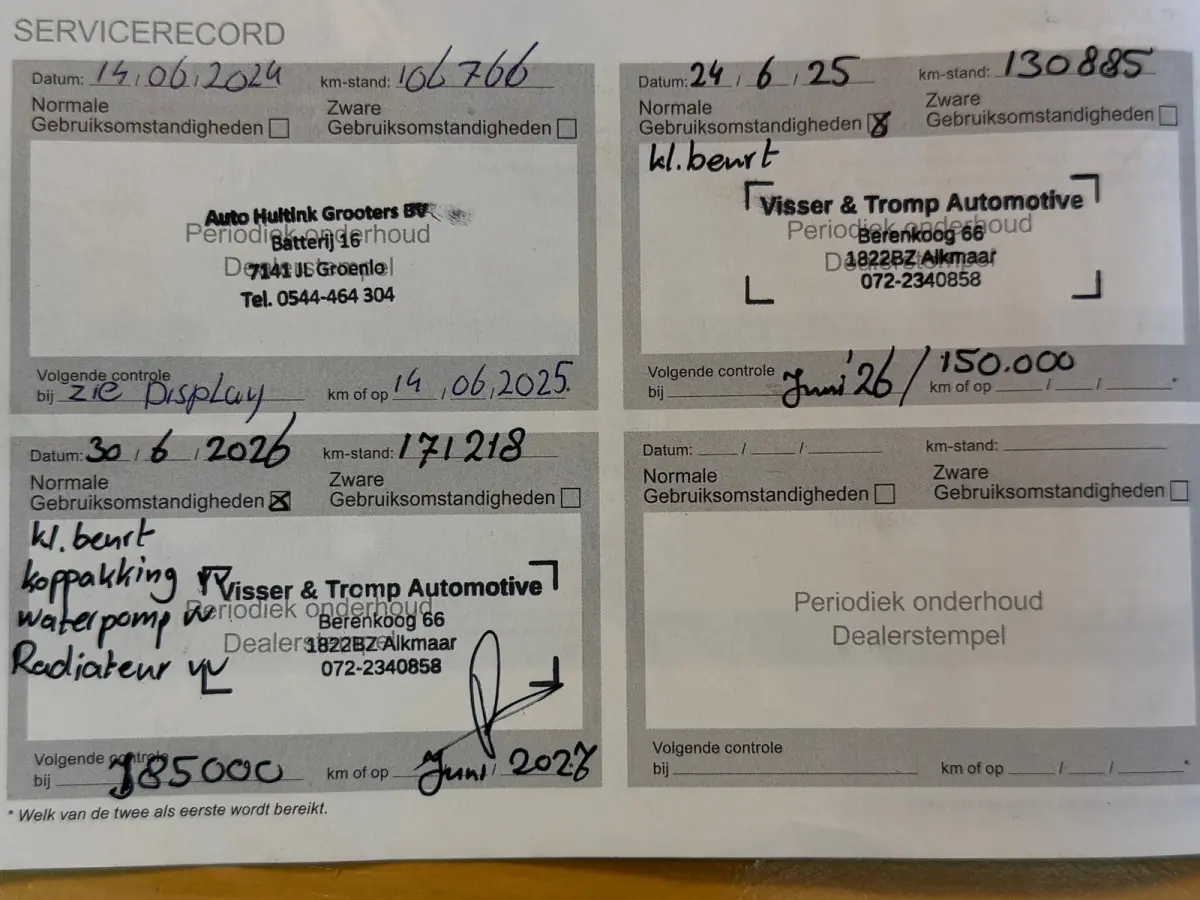 SERVICERECORD
Datum: 14/06/2024 km-stand: 106766
Normale Zware
Gebruiksomstandigheden Gebruiksomstandigheden
Auto Hultink Grooters BV
Periodiek onderhoud
Batterij 16
Dealerstempel
7141 JL Groenlo
Tel. 0544-464 304
Volgende controle
bij zie Display km of op 14/06/2025.
Datum: 24/6/25 km-stand: 130885
Normale Zware
Gebruiksomstandigheden X Gebruiksomstandigheden
kl. beurt
Visser & Tromp Automotive
Periodiek onderhoud
Berenkoog 66
Dealerstempel
1822BZ Alkmaar
072-2340858
Volgende controle
bij Juni '26 / 150.000 km of op / / *
Datum: 30/6/2026 km-stand: 171218
Normale Zware
Gebruiksomstandigheden X Gebruiksomstandigheden
kl. beurt
koppakking
Visser & Tromp Automotive
waterpomp
Periodiek onderhoud
Berenkoog 66
Radiateur vv
Dealerstempel
1822BZ Alkmaar
072-2340858
Volgende controle
bij 185000 km of op Juni 2027
Datum: / / km-stand:
Normale Zware
Gebruiksomstandigheden Gebruiksomstandigheden
Periodiek onderhoud
Dealerstempel
Volgende controle
bij km of op / / *
* Welk van de twee als eerste wordt bereikt.